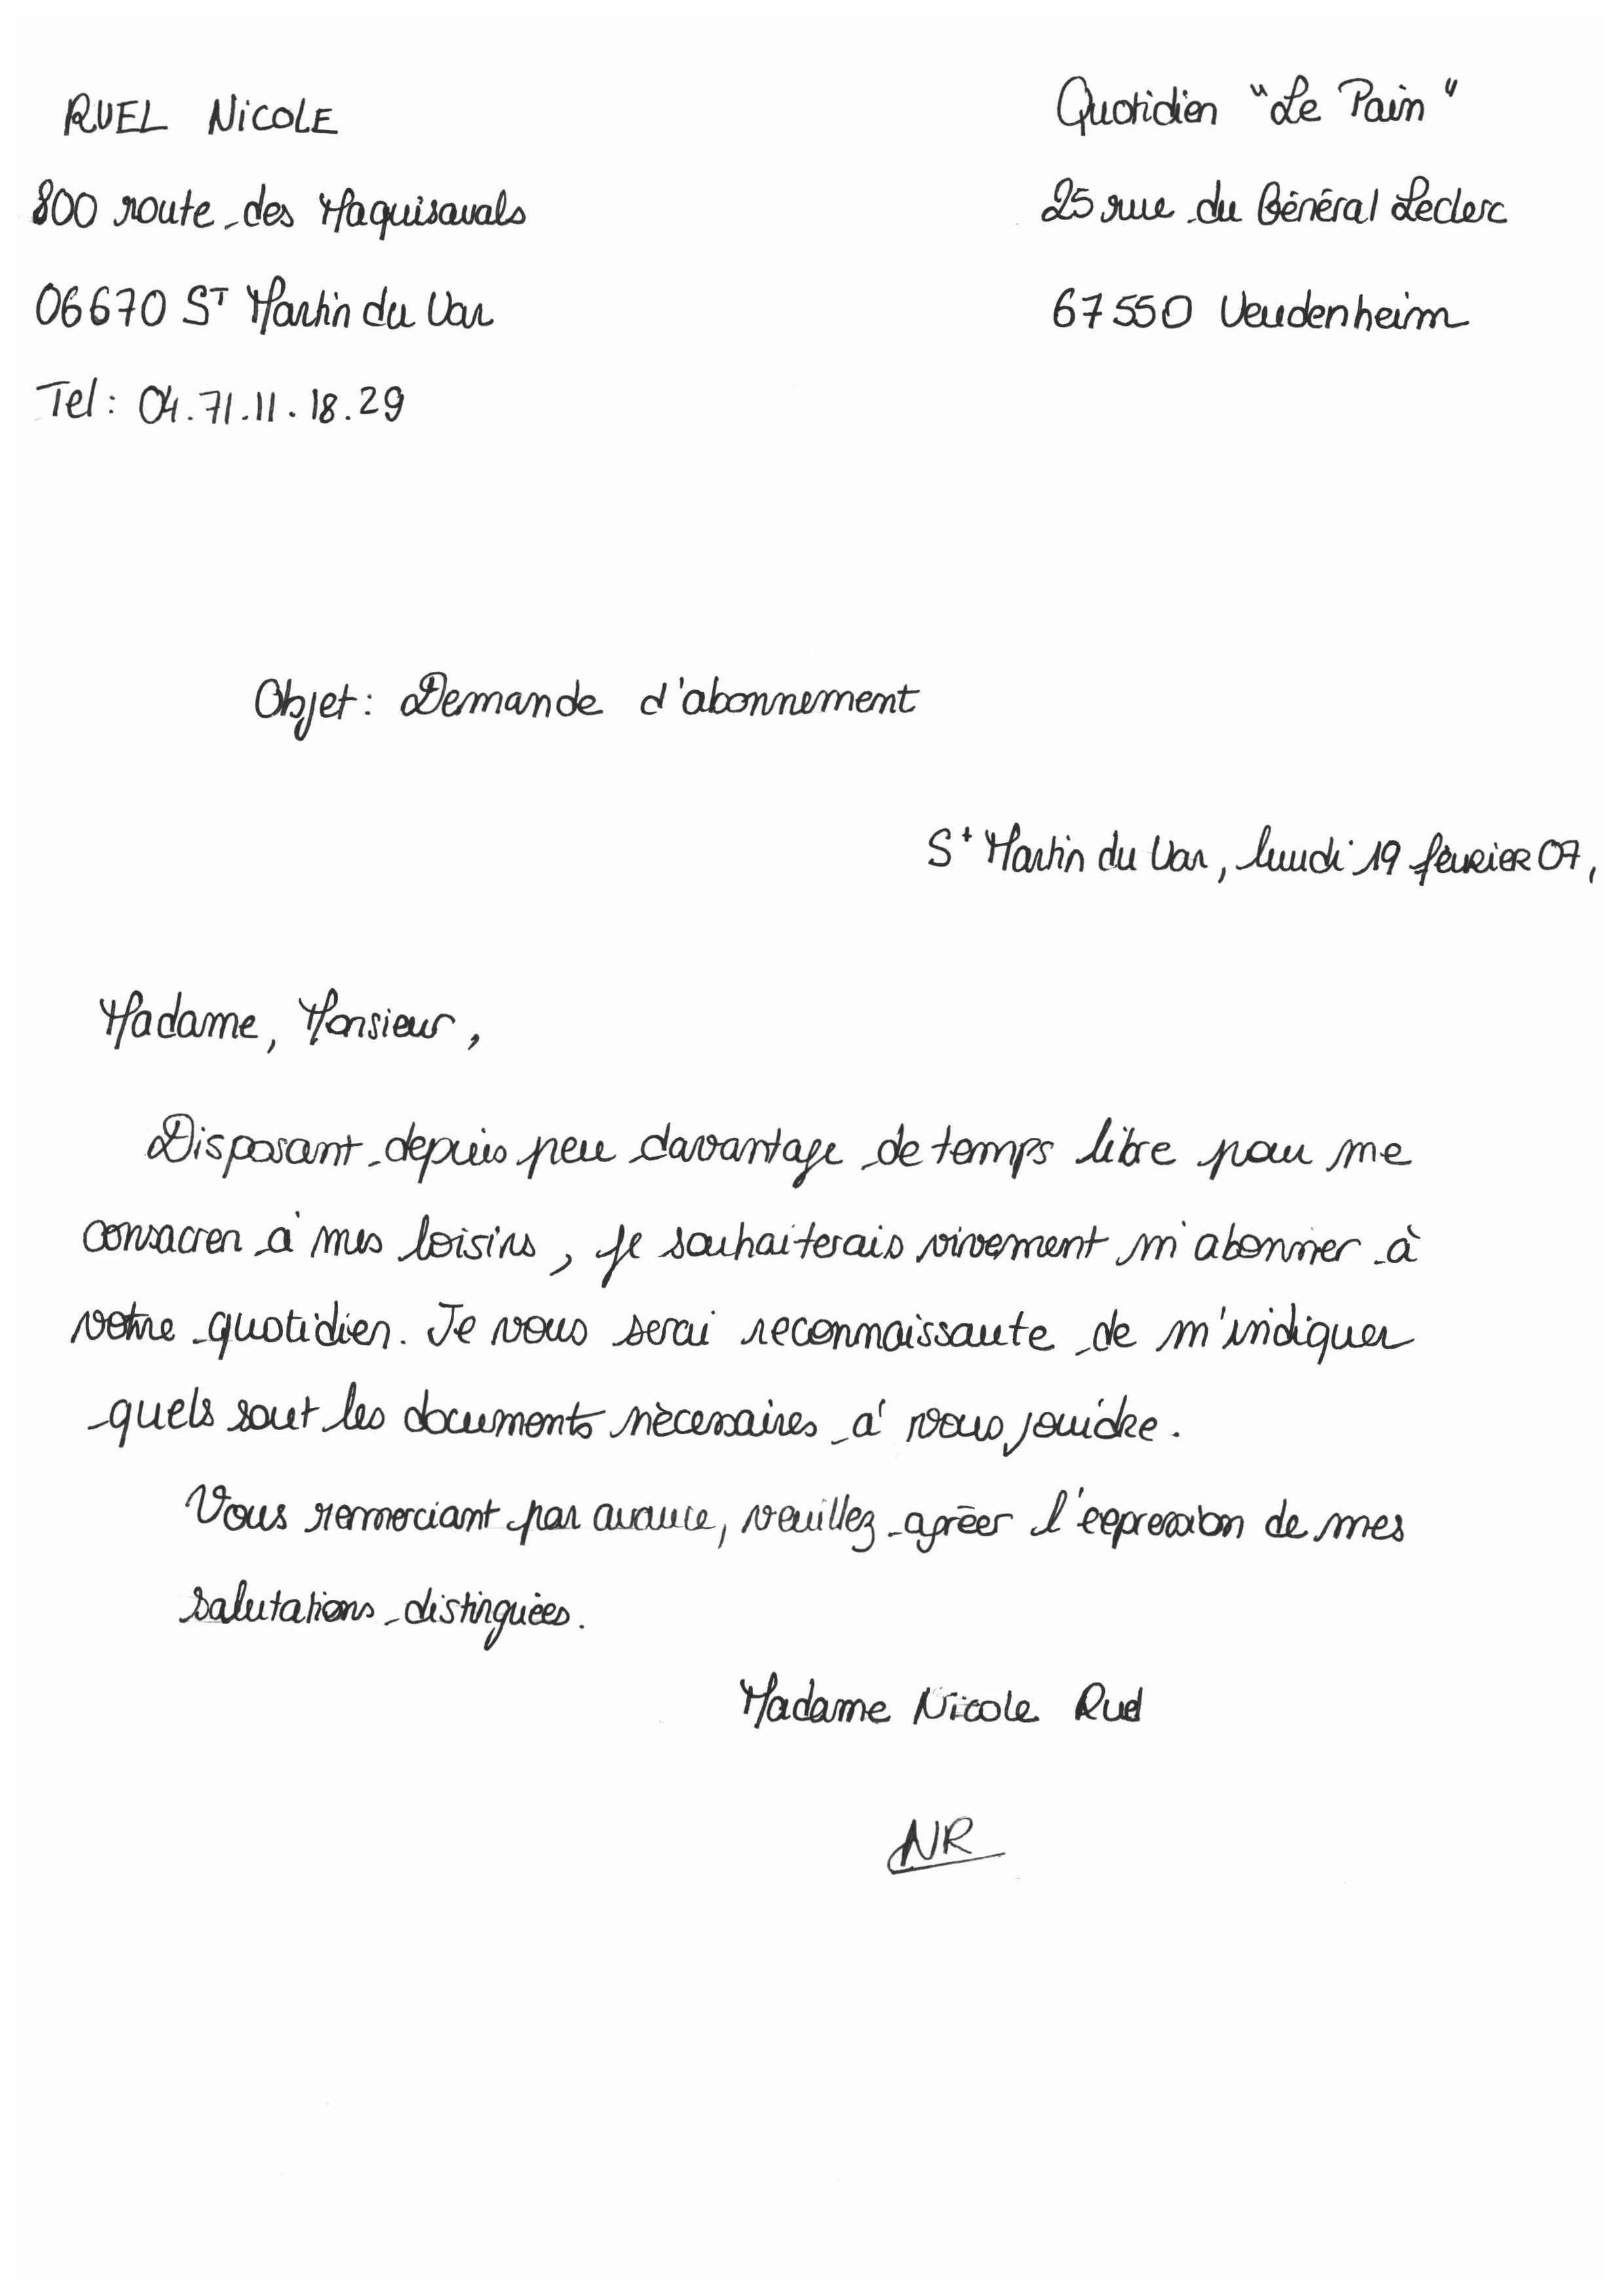 RUEL NICOLE
800 route des Maquisavals
06670 St Martin du Var
Tel : 04.71.11.18.29
Quotidien "Le Pain"
25 rue du Général Leclerc
67550 Vendenheim
Objet : Demande d'abonnement
St Martin du Var, lundi 19 février 07,
Madame, Monsieur,
Disposant depuis peu davantage de temps libre pour me
consacrer à mes loisirs, je souhaiterais vivement m'abonner à
votre quotidien. Je vous serai reconnaissante de m'indiquer
quels sont les documents nécessaires à vous joindre.
Vous remerciant par avance, veuillez agréer l'expression de mes
salutations distinguées.
Madame Nicole Ruel
NR